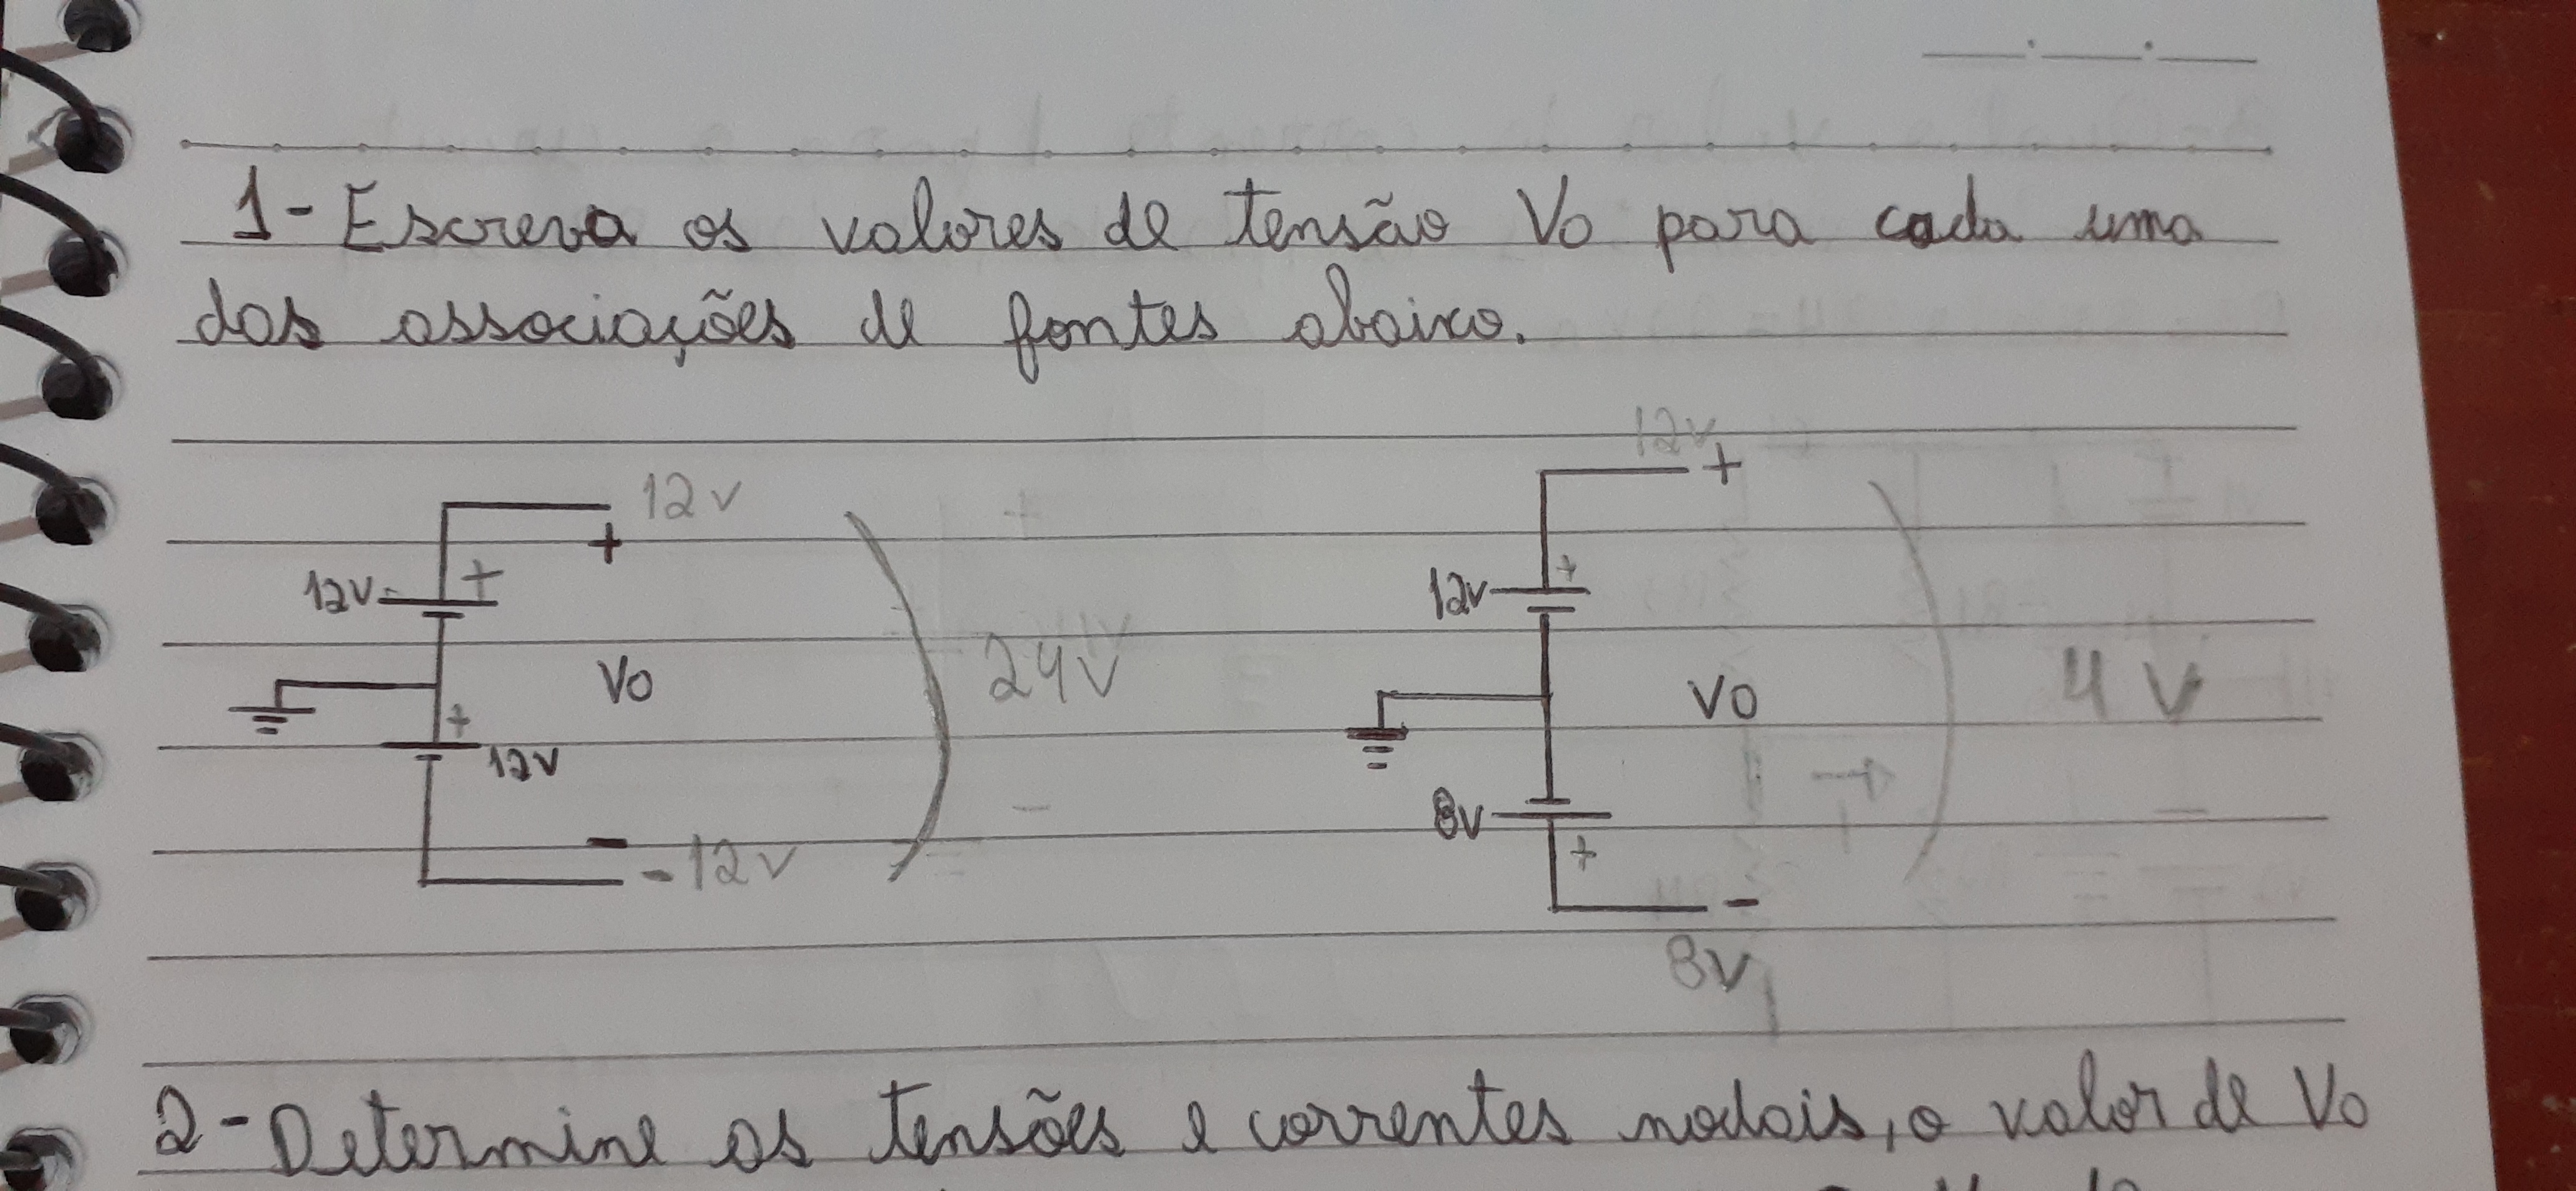 1- Escreva os valores de tensão Vo para cada uma
das associações de fontes abaixo.
12v
+
12v
+
Vo
24v
+
12v
-
-12v
12v
+
12v
+
Vo
4v
8v
+
-
8v
2- Determine as tensões e correntes nodais, o valor de Vo